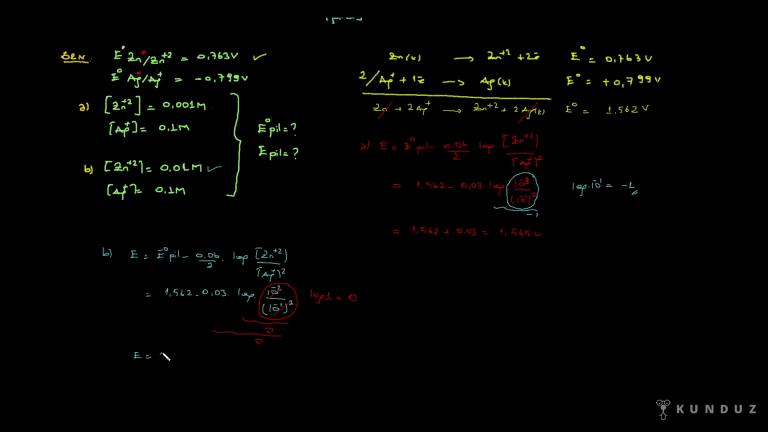 E° Zn/Zn+2 = 0,763V ✓
E° Ag/Ag+ = -0,799V
a) [Zn+2] = 0.001M
[Ag+] = 0.1M
E° pil = ?
E pil = ?
b) [Zn+2] = 0.01M ✓
[Ag+] = 0.1M
Zn(k) → Zn+2 + 2ē E° = 0,763V
2/Ag+ + 1ē → Ag(k) E° = +0,799V
Zn + 2Ag+ → Zn+2 + 2Ag(k) E° = 1.562V
a) E = E°pil - 0.06/2 log [Zn+2]/[Ag+]2
= 1.562 - 0,03 log 10-3/(10-1)2 log 10-1 = -1
-1
= 1.562 + 0.03 = 1.565V
b) E = E°pil - 0.06/2 log [Zn+2]/[Ag+]2
= 1,562 - 0,03. log 10-2/(10-1)2 log 1 = 0
0
0
E =
KUNDUZ